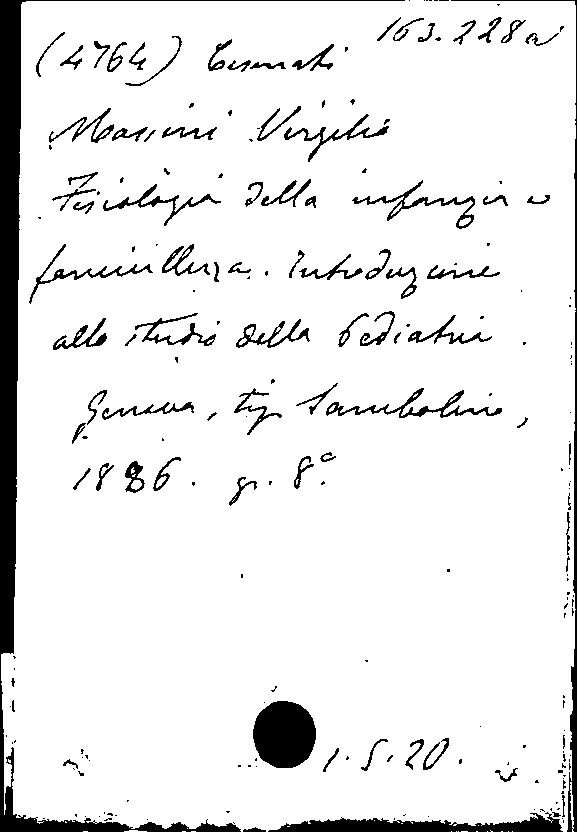 163.228 a
(4764) Cesenati
Massini Virgilio
Fisiologia della infanzia e
fanciullezza. Introduzione
allo studio della Pediatria.
Genova, tip. Sambolino,
1886. gr. 8°.
1.5.20.